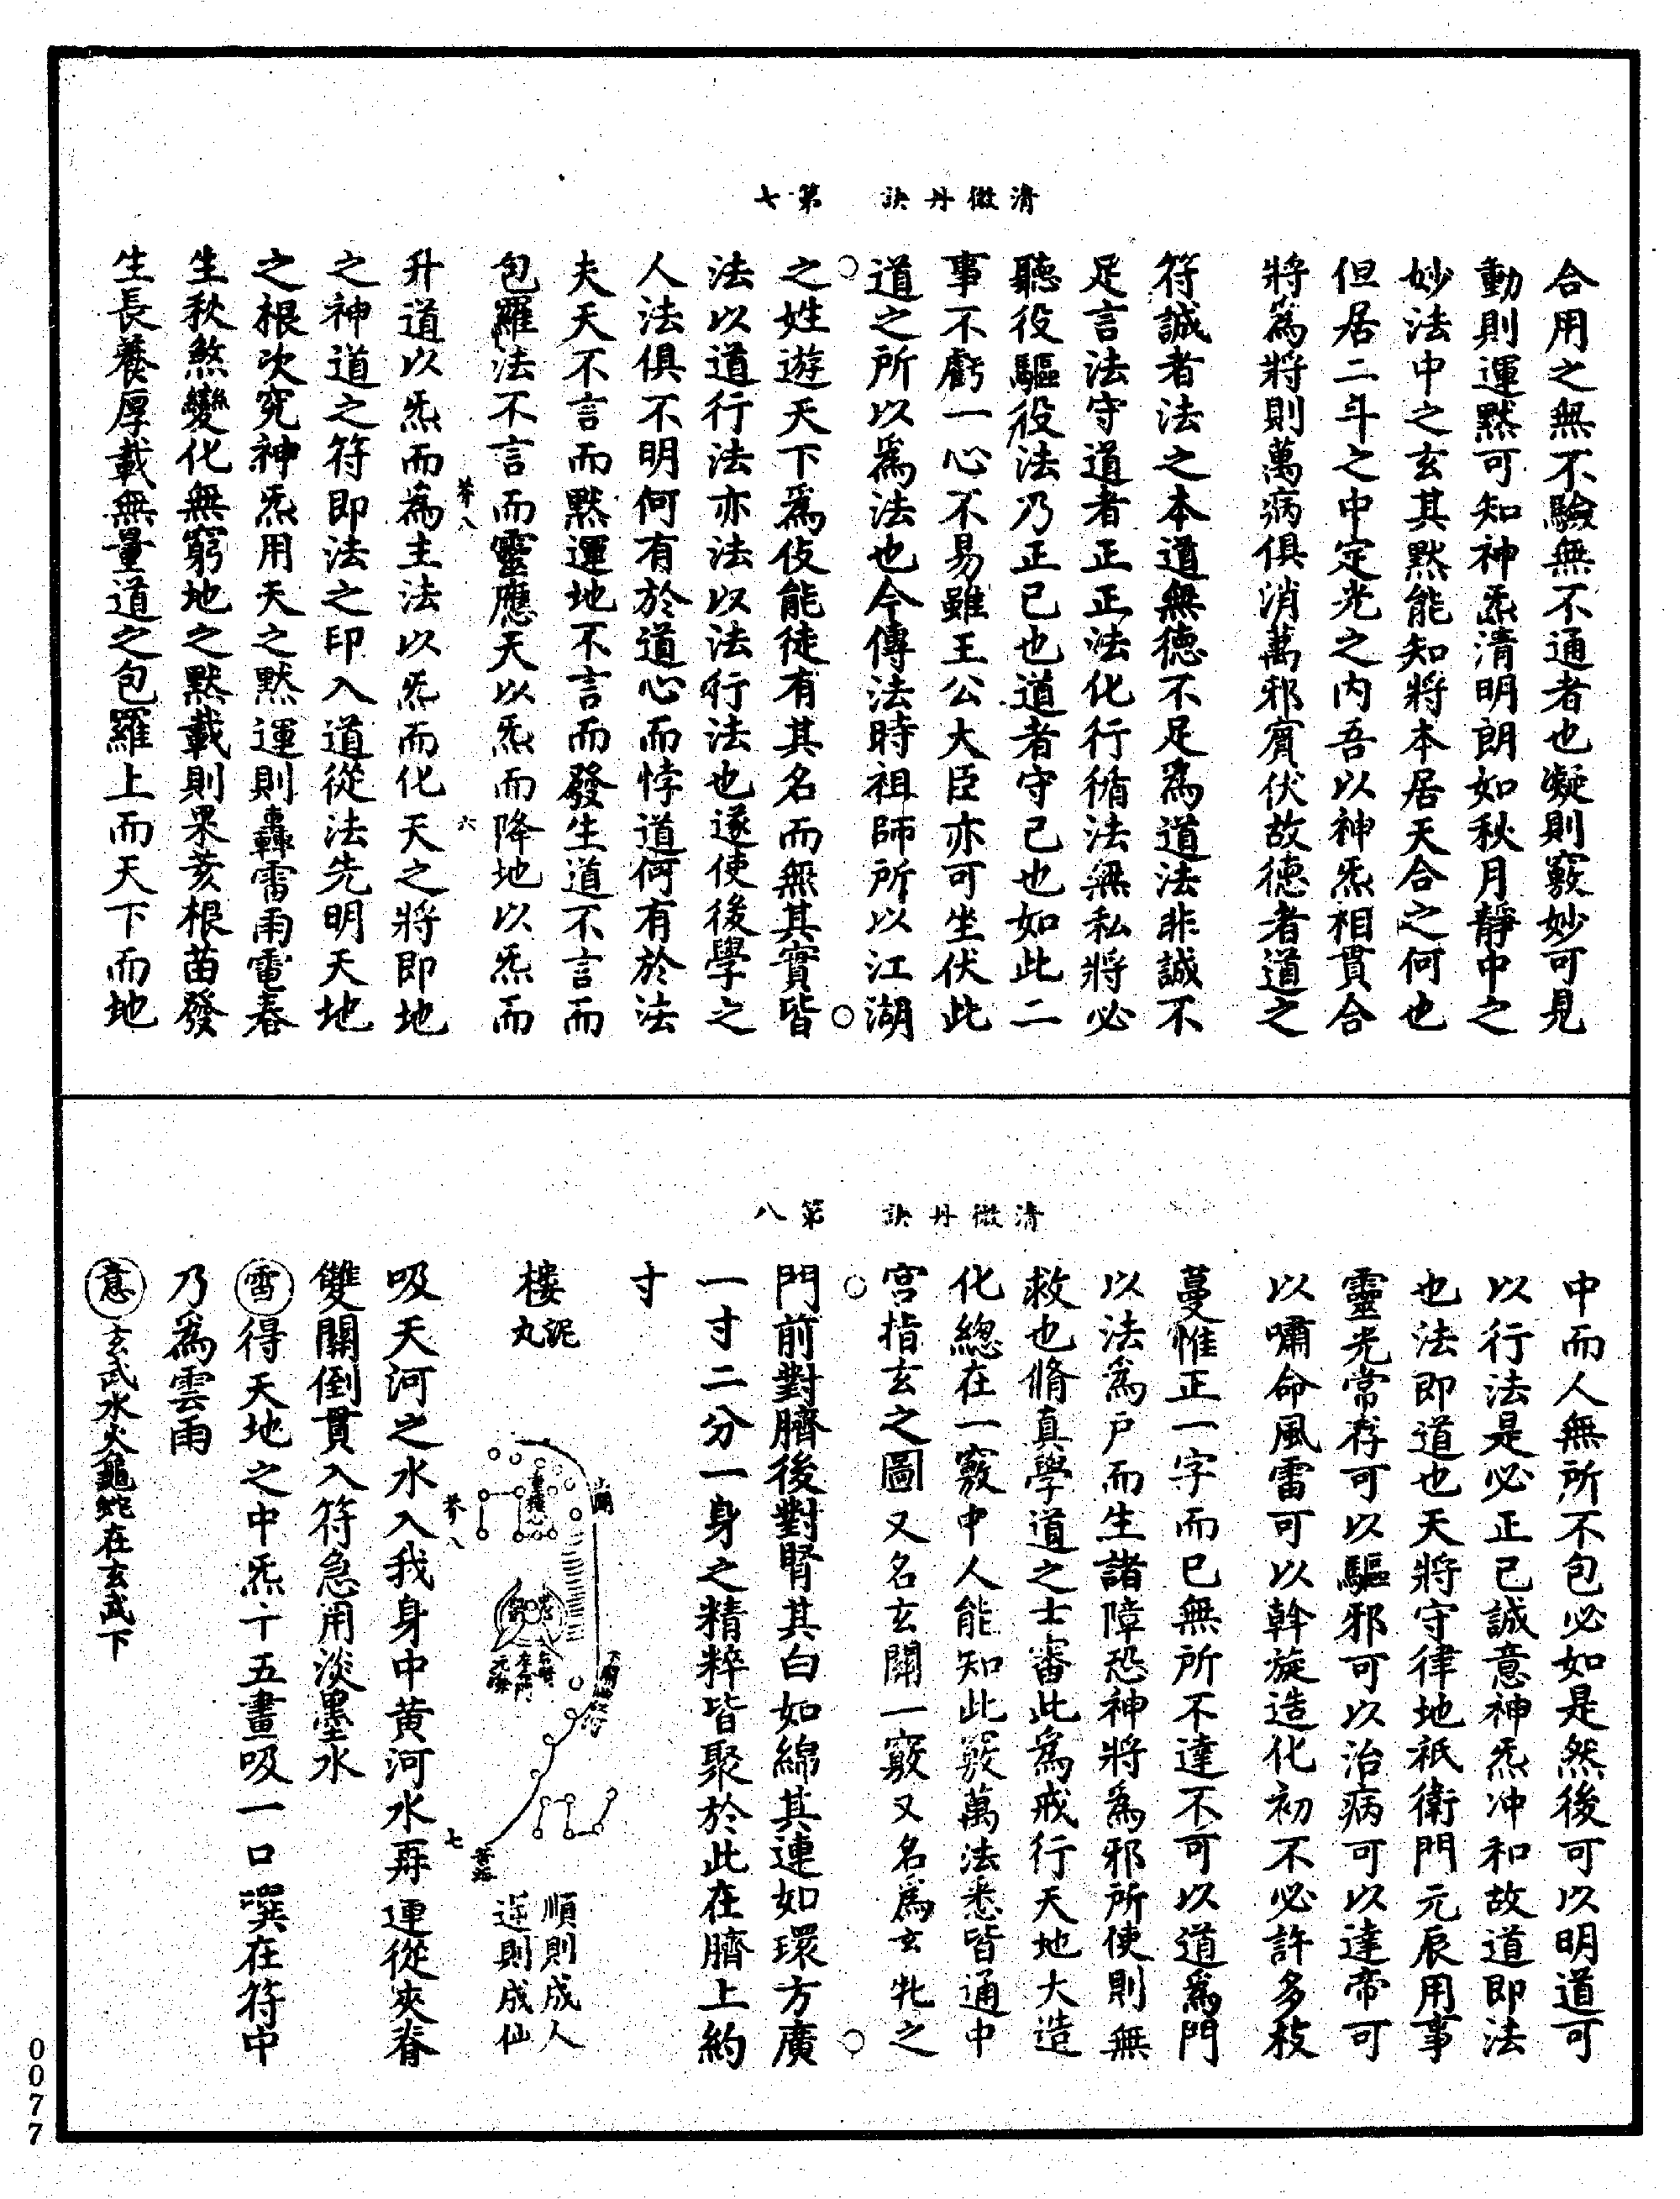 清微丹訣　第七
合用之無不驗無不通者也凝則竅妙可見
動則運默可知神炁清明朗如秋月靜中之
妙法中之玄其默能知將本居天合之何也
但居二斗之中定光之内吾以神炁相貫合
將為將則萬病俱消萬邪賓伏故德者道之
符誠者法之本道無德不足為道法非誠不
足言法守道者正正法化行循法無私將必
聽役驅役法乃正己也道者守己也如此二
事不虧一心不易雖王公大臣亦可坐伏此
道之所以為法也今傳法時祖師所以江湖
之姓遊天下為伎能徒有其名而無其實皆
法以道行法亦法以法行法也遂使後學之
人法俱不明何有於道心而悖道何有於法
夫天不言而默運地不言而發生道不言而
包羅法不言而靈應天以炁而降地以炁而
芥八　六
升道以炁而為主法以炁而化天之將即地
之神道之符即法之印入道從法先明天地
之根次究神炁用天之默運則轟雷雨電春
生秋煞變化無窮地之默載則果荄根苗發
生長養厚載無量道之包羅上而天下而地
清微丹訣　第八
中而人無所不包必如是然後可以明道可
以行法是必正己誠意神炁冲和故道即法
也法即道也天將守律地祇衛門元辰用事
靈光常存可以驅邪可以治病可以達帝可
以嘯命風雷可以斡旋造化初不必許多枝
蔓惟正一字而已無所不達不可以道為門
以法為户而生諸障恐神將為邪所使則無
救也脩真學道之士審此為戒行天地大造
化總在一竅中人能知此竅萬法悉皆通中
宮指玄之圖又名玄關一竅又名為玄牝之
門前對臍後對腎其白如綿其連如環方廣
一寸二分一身之精粹皆聚於此在臍上約
寸
泥丸
楼
順則成人
逆則成仙
芥八　七
吸天河之水入我身中黄河水再運從夾脊
雙關倒貫入符急用淡墨水
雷得天地之中炁十五畫吸一口噀在符中
乃為雲雨
意玄武水火龜蛇在玄武下
0077